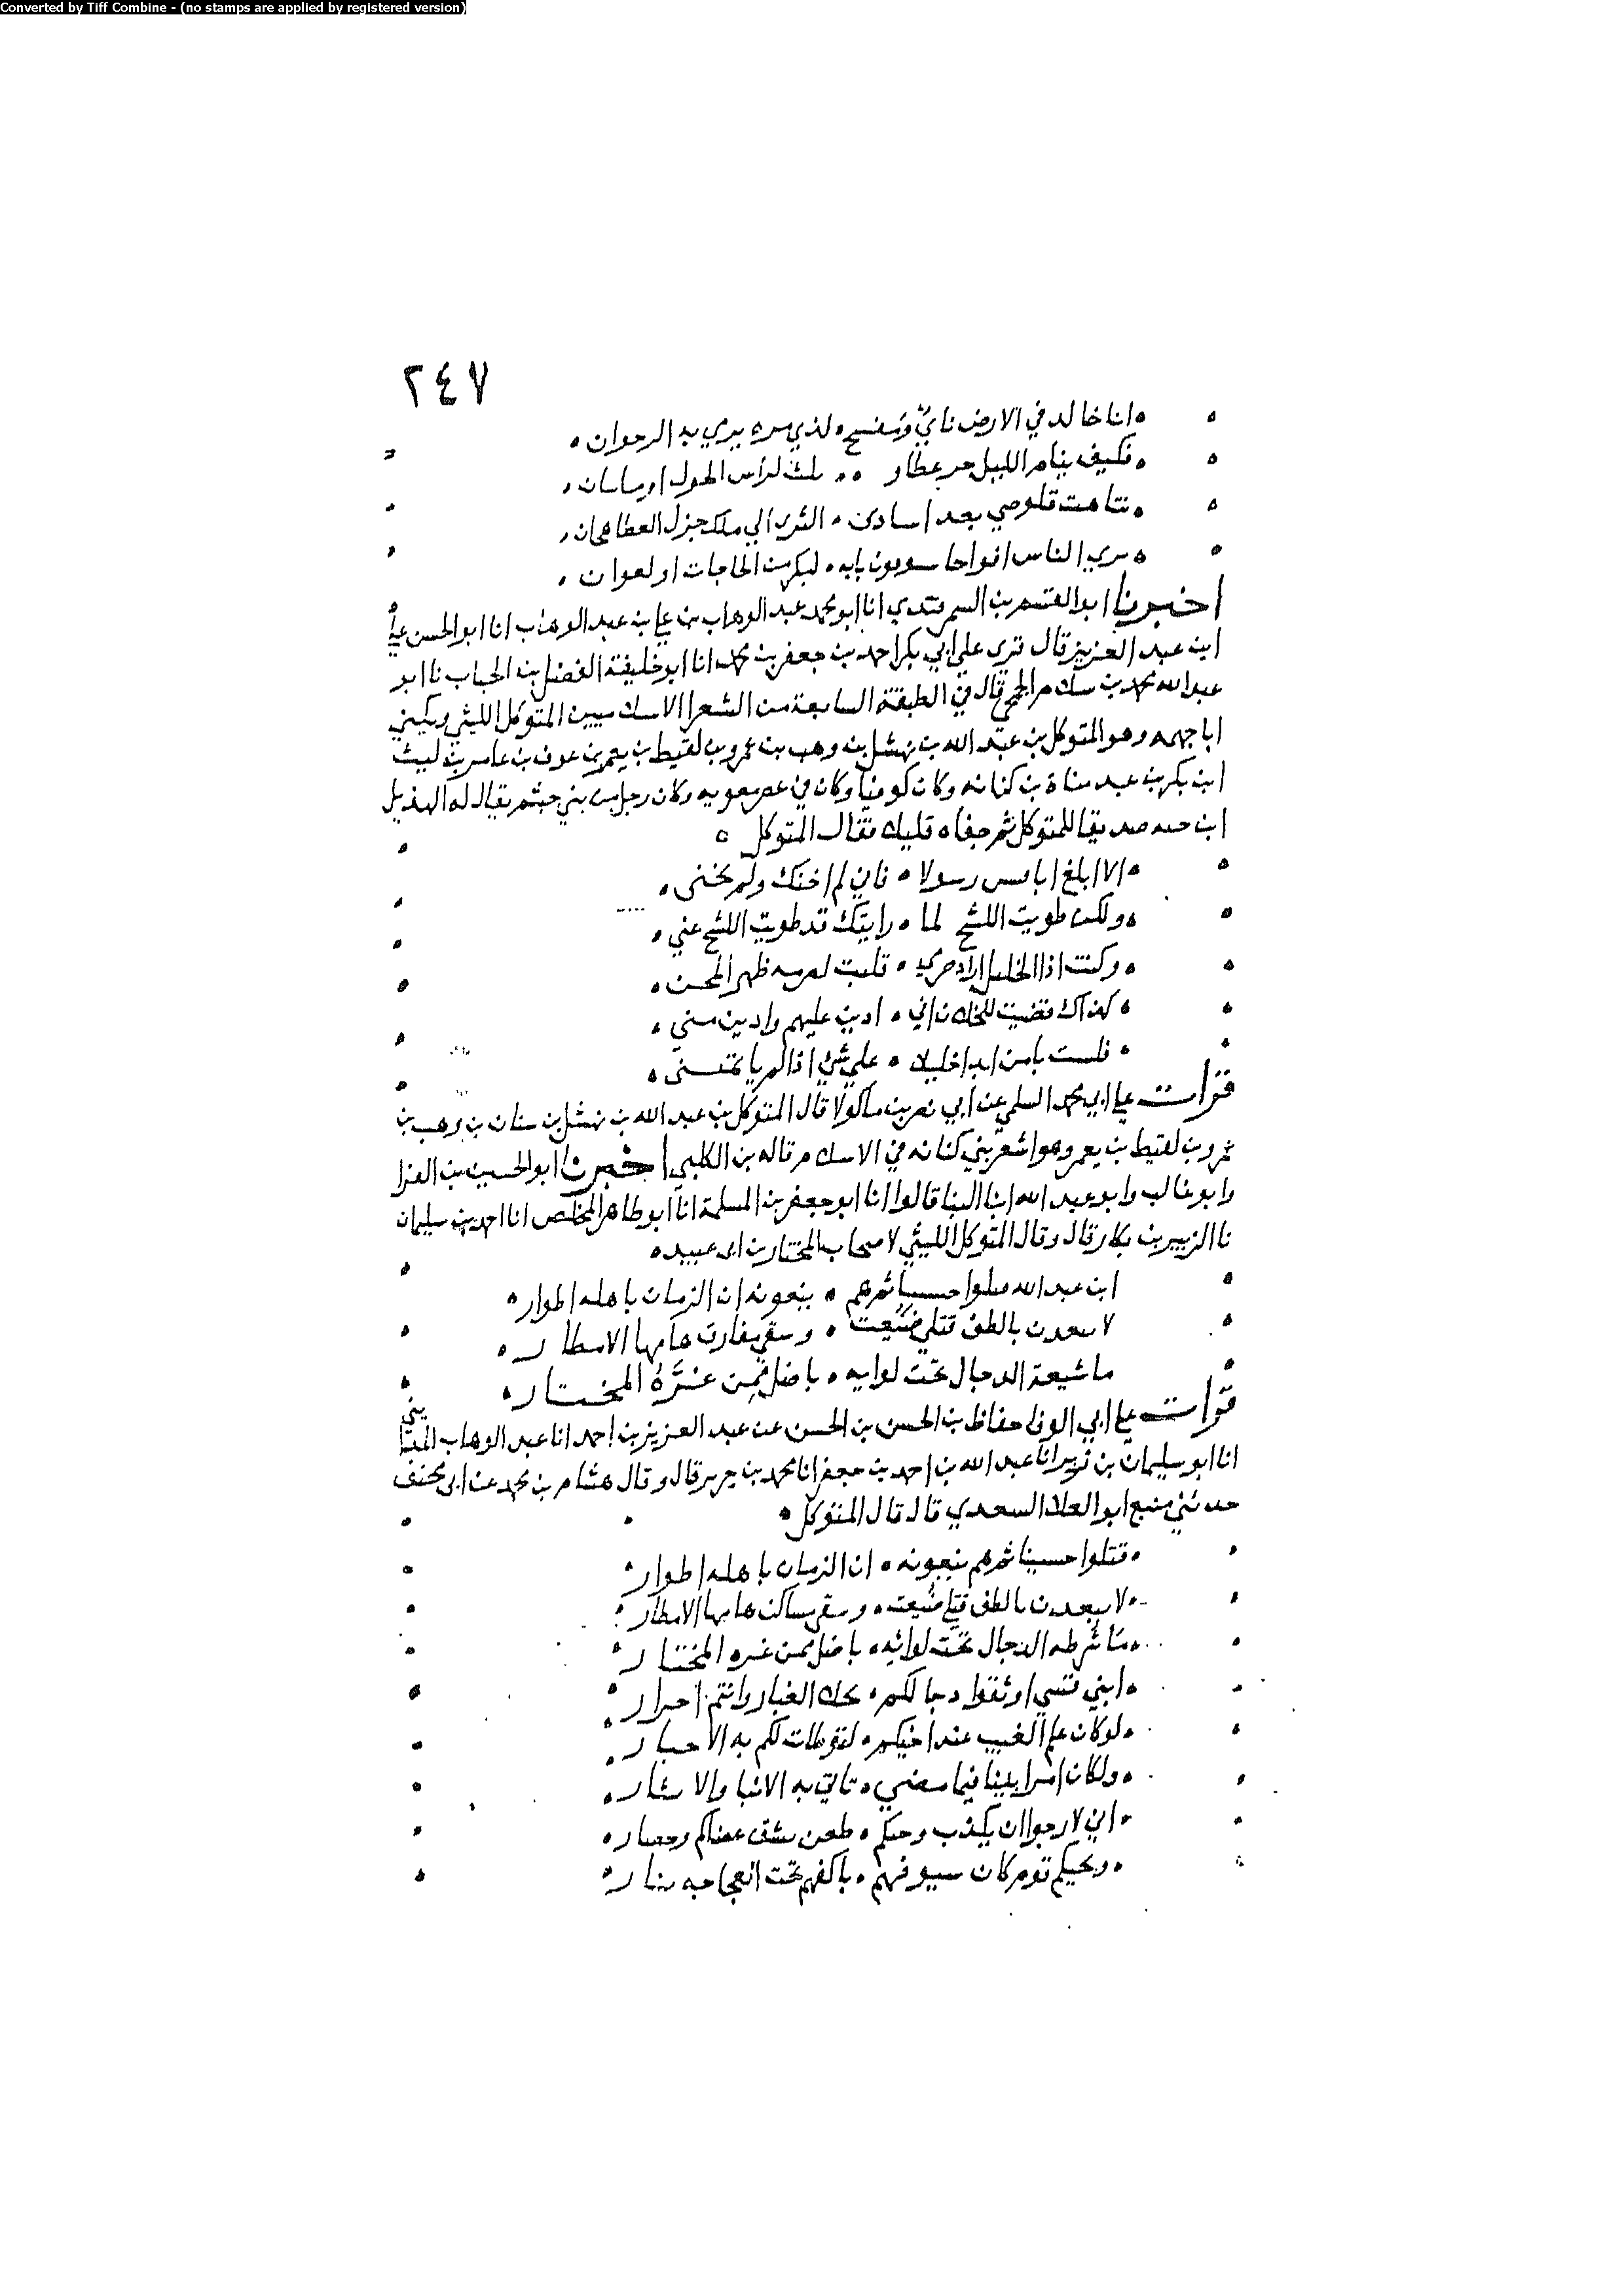 Converted by Tiff Combine - (no stamps are applied by registered version)
٢٤٧
انا خالد في الارض ناي وفسح لذي يرمي به الرجوان
فكيف ينام الليل لراس الحول او
تناهت قلوصي بعد اسادى الثرى الي ملك جزل العطا هجان
الناس افواجا بابه لبكر من الحاجات او لعوان
اخبرنا ابو القسم بن السمرقندي انا ابو محمد عبد الوهاب بن علي بن عبد الوهاب انا ابو الحسن علي
ابن عبد العزيز قال قري علي ابي بكر احمد بن جعفر بن محمد انا ابو خليفة الفضل بن الحباب نا ابو
عبد الله محمد بن سلام الجمحي قال في الطبقة السابعة من الشعرا الاسلاميين المتوكل الليثي ويكني
ابا جهمه وهو المتوكل بن عبد الله بن نهشل بن وهب بن عمرو بن لقيط بن يعمر بن عوف بن عامر بن ليث
ابن بكر بن عبد مناة بن كنانه وكان كوفيا وكان في عصر معويه وكان رجل من بني جشم يقال له الهذيل
ابن حيه صديقا للمتوكل ثم جفاه قليلا فقال المتوكل
الا ابلغ ابا قيس رسولا فاني لم اخنك ولم تخنى
ولكن طويت الكشح لما رايتك قد طويت الكشح عني
وكنت اذا الخليل اراد صرمي قلبت لصرمه ظهر المجن
كذاك قضيت للخلان اني ادين عليهم وادين مني
فلست بامن ابدا خليلا علي شي اذا لم ياتمنى
قرات علي ابي محمد السلمي عن ابي نصر بن ماكولا قال المتوكل بن عبد الله بن نهشل بن سنان بن وهب بن
عمرو بن لقيط بن يعمر وهو اشعر بني كنانه في الاسلام قاله بن الكلبي اخبرنا ابو الحسين بن الفرا
وابو غالب وابو عبد الله ابنا البنا قالوا انا ابو جعفر بن المسلمة انا ابو طاهر المخلص انا احمد بن سليمان
نا الزبير بن بكار قال وقال المتوكل الليثي لاصحاب المختار بن ابي عبيد
ابن عبد الله قتلوا حسينا ثم هم ينعونه ان الزمان باهله اطوار
لا تبعدن بالطف قتلي ضيعت وسقي مفارق هامها الامطار
ما شيعة الدجال تحت لوايه باضل ممن غره المختار
قرات علي ابي الوفا حفاظ بن الحسن بن الحسن عن عبد العزيز بن احمد انا عبد الوهاب الميداني
انا ابو سليمان بن زبر انا عبد الله بن احمد بن جعفر انا محمد بن جرير قال وقال هشام بن محمد عن ابي مخنف
حدثني منيع ابو العلا السعدي قال قال المتوكل
قتلوا حسينا ثم هم ينعونه ان الزمان باهله اطوار
لا تبعدن بالطف قتلي ضيعت وسقي مساكن هامها الامطار
ما شرطه الدجال تحت لوائه باضل ممن غره المختار
ابني قسي اوثقوا دجالكم يجل الغبار وانتم احرار
لو كان علم الغيب عند اخيكم لتوطات لكم به الاحبار
ولكان امرا بينا فيما مضي تاتي به الانبا والاثار
اني لارجو ان يكذب وحيكم طعن يشق عصاكم وحصار
ويجيكم قوم كان سيوفهم باكفهم تحت العجاجه نار